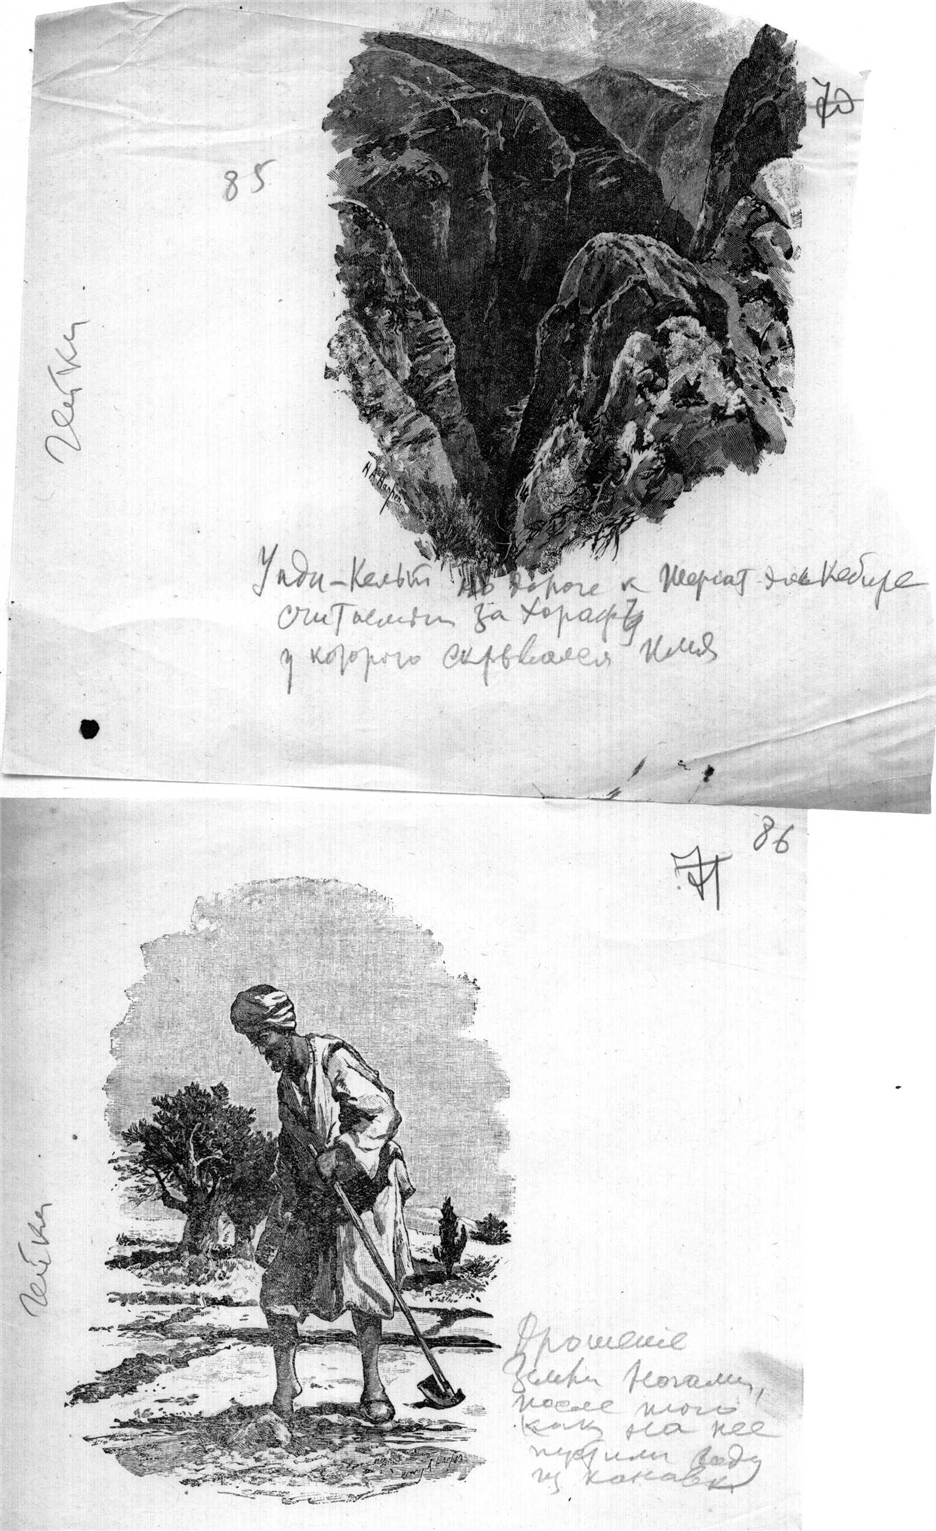 85
70
Гейки
Уади-Кельт по дороге к
считаемый за Хораф,
у которого скрывался Илия
86
71
Гейки
Орошение
Земли ногами,
после того
как на нее
пустили воду
из канавки